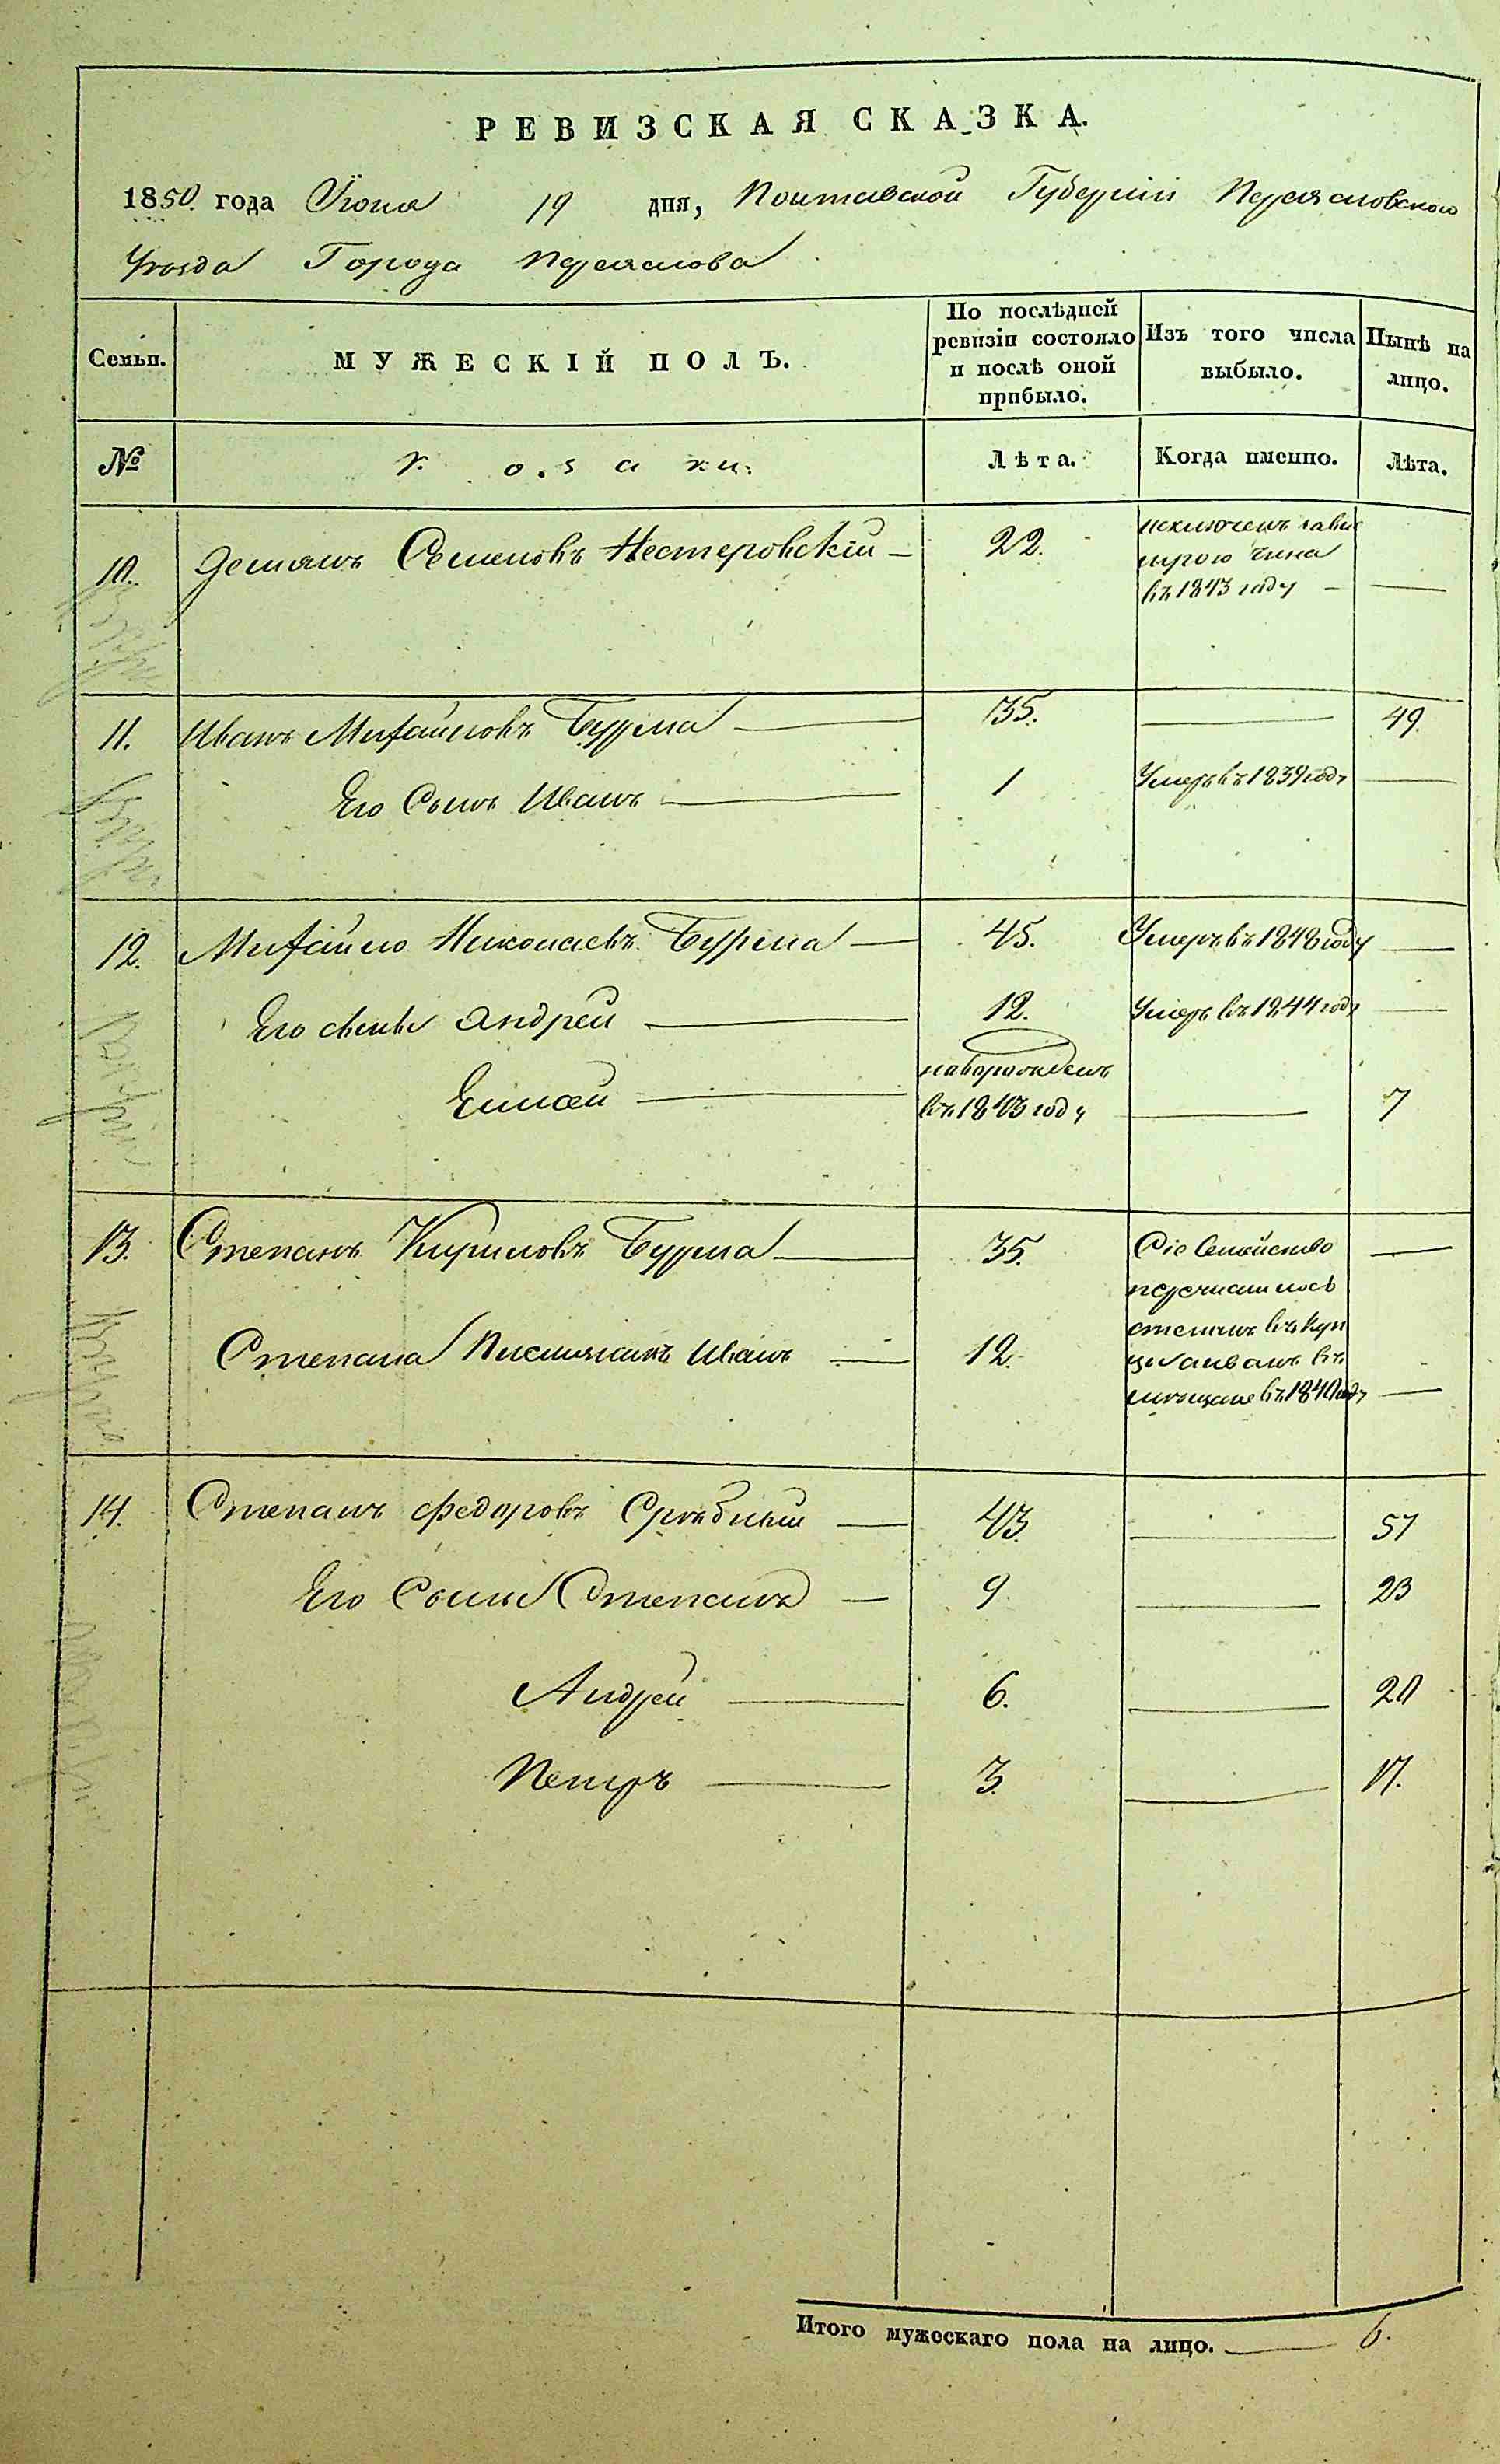 РЕВИЗСКАЯ СКАЗКА.
1850. года Іюня 19 дня, Полтавской Губерніи Переясловского
Уезда Города Переяслова
Семьи. МУЖЕСКІЙ ПОЛЪ. По послѣдней ревизіи состояло и послѣ оной прибыло. Изъ того числа выбыло. Нынѣ на лицо.
№ Козаки. Лѣта. Когда именно. Лѣта.
10. Демянъ Семеновъ Нестеровскій — 22. исключенъ
чина
въ 1843 году — —
11. Иванъ Михайловъ Бурма — 35. — 49.
Его Сынъ Иванъ — 1 Умеръ въ 1839 году —
12. Михайло Николаевъ Бурма — 45. Умеръ въ 1848 году —
Его сыны Андрей — 12. Умеръ въ 1844 году —
новорожденъ
Еписей — въ 1843 году — 7
13. Степанъ Кириловъ Бурма — 35. Сіе Семейство —
перечислилось
Степана Племянникъ Иванъ — 12. степанъ въ куп
цы а иванъ въ
мещане въ 1840 году —
14. Степанъ Федоровъ — 43. — 57
Его Сыны Степанъ — 9 — 23
Андрей — 6. — 20
Петръ — 3. — 17.
Итого мужескаго пола на лицо. — 6.